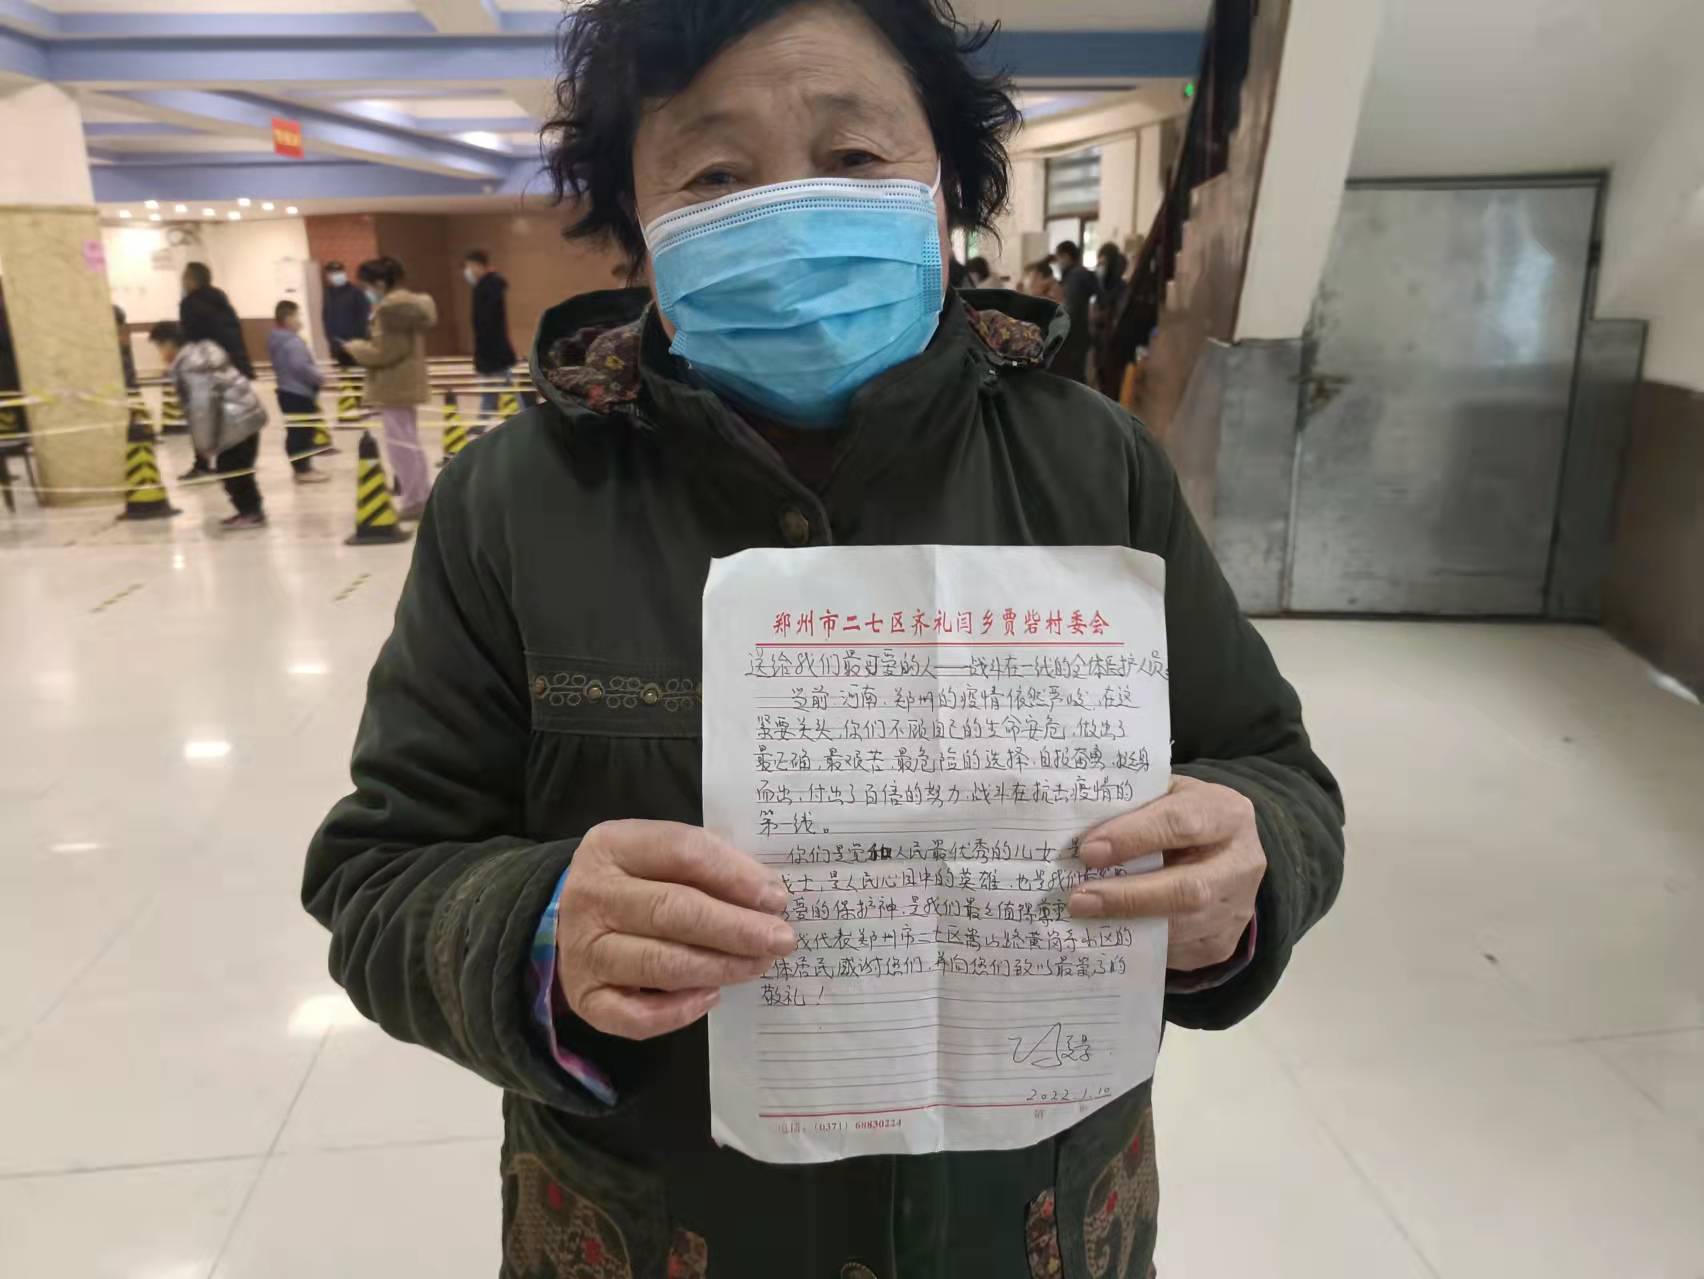 郑州市二七区齐礼闫乡贾砦村委会
送给我们最可爱的人——战斗在一线的全体医护人员:
当前.河南.郑州的疫情依然严峻.在这
紧要关头.你们不顾自己的生命安危.做出了
最正确.最艰苦.最危险的选择.自报奋勇.挺身
而出.付出了百倍的努力.战斗在抗击疫情的
第一线。
你们是党和人民最优秀的儿女.是
战士.是人民心目中的英雄.也是我们
爱的保护神.是我们最值得尊重
我代表郑州市二七区嵩山路黄岗寺社区的
体居民感谢您们.并向您们致以最崇高的
敬礼!
2022.1.10
电话:(0371) 68830224
第